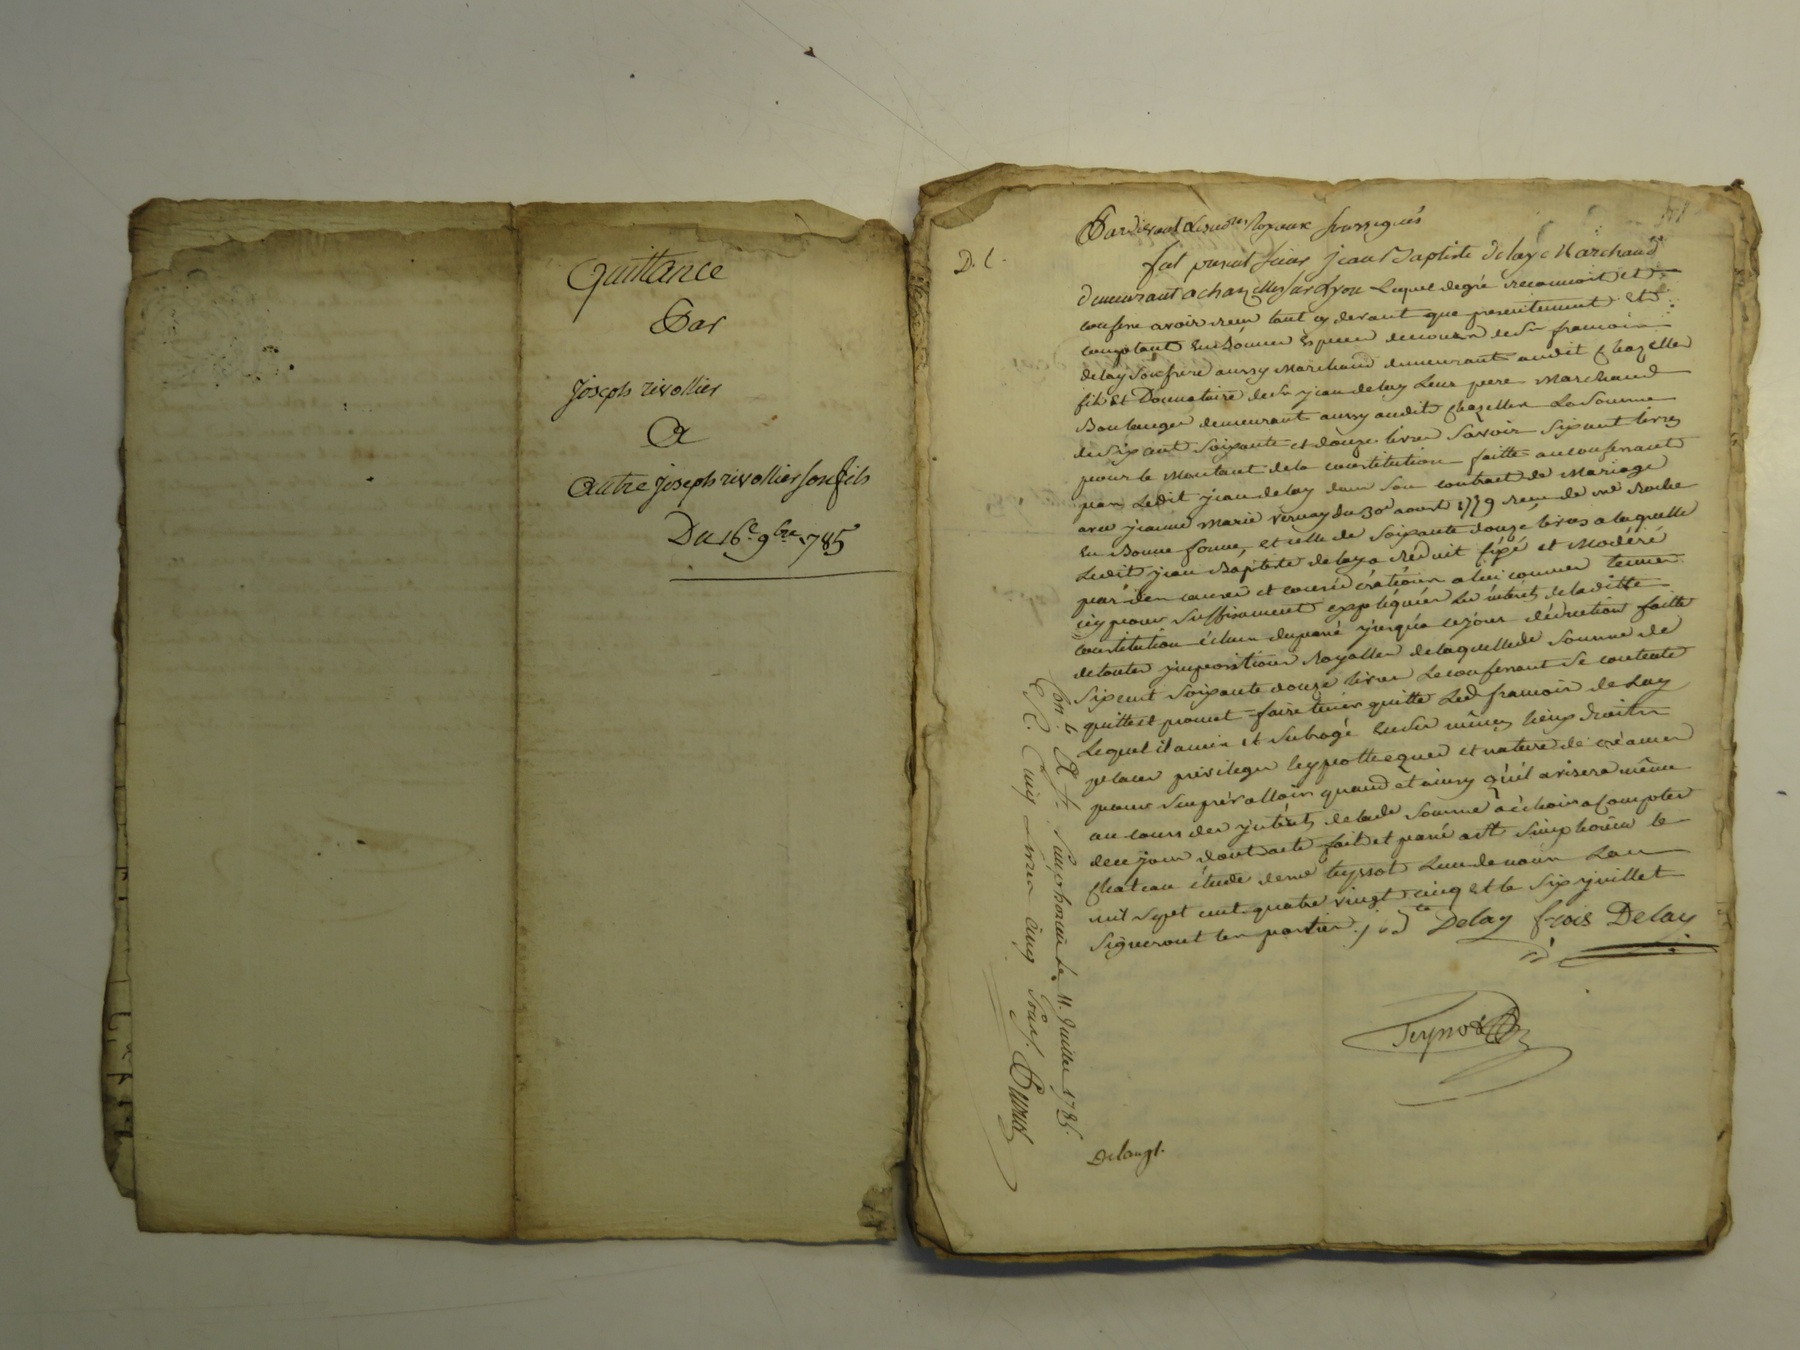 Quittance
Par
Joseph rivollier
A
Autre Joseph rivollier son fils
Du 16e 9bre 1785
D. C.
Par devant Les nores Royaux soussignés
fut present sieur jean Baptiste delay Marchand
demeurant a chazelles sur Lyon Lequel de gré reconnoit et
confesse avoir reçu tant cy devant que presentement et
comptant en bonnes especes de cours de sr francois
delay son frere aussy Marchand demeurant audit chazelles
fils et Donnataire de sr jean delay Leur pere Marchand
Boulanger demeurant aussy audit chazelles La somme
de six cent soixante et douze livres savoir six cent livres
pour le Montant de la constitution faitte au confessant
par Ledit jean delay dans son contract de Mariage
avec jeanne Marie vernay du 30e aoust 1779 reçu de me
en Bonne forme, et celle de soixante douze livres a laquelle
Ledit jean Baptiste delay a réduit fixé et Modéré
par des causes et considérations a lui connues tenues
icy pour suffisament expliquées Les intérêts de la ditte
constitution échus du passé jusqu'a ce jour déduction faitte
de toutes impositions Royalles de laquelle de somme de
six cent soixante douze livres Le confessant se contente
quitte et promet faire tenir quitte Led francois de Lay
Lequel il a mis et subrogé en ses mêmes lieux droits
places privileges hypotheques et nature de créances
pour s'en prévalloir quand et ainsy qu'il avisera même
au cours des intérêts de lade somme a échoir a compter
de ce jour dont acte fait et passé a st Simphorien le
chateau étude de me teyssot L'un de nous L'an
mil sept cent quatre vingt cinq et le six juillet
signeront les parties. j. Bte Delay frois Delay
Con. le A St. Simphorien le 11. Juillet 1785.
R. Cinq Livres cinq sous.